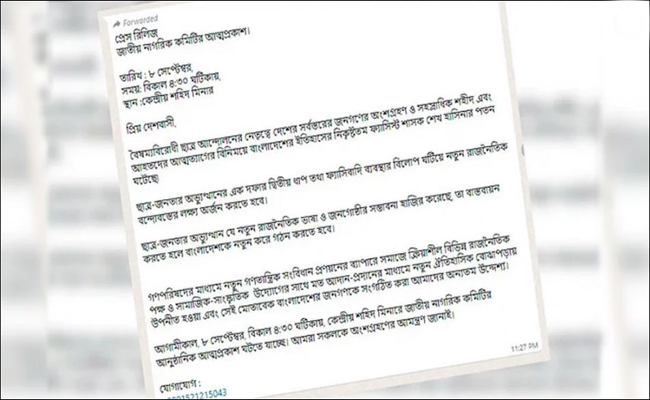 Forwarded
প্রেস রিলিজ
জাতীয় নাগরিক কমিটির আত্মপ্রকাশ।
তারিখ : ৮ সেপ্টেম্বর,
সময়: বিকাল ৪:৩০ ঘটিকায়,
স্থান :কেন্দ্রীয় শহিদ মিনার
প্রিয় দেশবাসী,
বৈষম্যবিরোধী ছাত্র আন্দোলনের নেতৃত্বে দেশের সর্বস্তরের জনগণের অংশগ্রহণ ও সহস্রাধিক শহীদ এবং
আহতদের আত্মত্যাগের বিনিময়ে বাংলাদেশের ইতিহাসের নিকৃষ্টতম ফ্যাসিস্ট শাসক শেখ হাসিনার পতন
ঘটেছে।
ছাত্র-জনতার অভ্যুত্থানের এক দফার দ্বিতীয় ধাপ তথা ফ্যাসিবাদি ব্যবস্থার বিলোপ ঘটিয়ে নতুন রাজনৈতিক
বন্দোবস্তের লক্ষ্য অর্জন করতে হবে।
ছাত্র-জনতার অভ্যুত্থান যে নতুন রাজনৈতিক ভাষা ও জনগোষ্ঠীর সম্ভাবনা হাজির করেছে, তা বাস্তবায়ন
করতে হলে বাংলাদেশকে নতুন করে গঠন করতে হবে।
গণপরিষদের মাধ্যমে নতুন গণতান্ত্রিক সংবিধান প্রণয়নের ব্যাপারে সমাজে ক্রিয়াশীল বিভিন্ন রাজনৈতিক
পক্ষ ও সামাজিক-সাংস্কৃতিক উদ্যোগের সাথে মত আদান-প্রদানের মাধ্যমে নতুন ঐতিহাসিক বোঝাপড়ায়
উপনীত হওয়া এবং সেই মোতাবেক বাংলাদেশের জনগণকে সংগঠিত করা আমাদের অন্যতম উদ্দেশ্য।
আগামীকাল, ৮ সেপ্টেম্বর, বিকাল ৪:৩০ ঘটিকায়, কেন্দ্রীয় শহিদ মিনারে জাতীয় নাগরিক কমিটির
আনুষ্ঠানিক আত্মপ্রকাশ ঘটতে যাচ্ছে। আমরা সকলকে অংশগ্রহণের আমন্ত্রণ জানাই।
11:27 PM
যোগাযোগ :